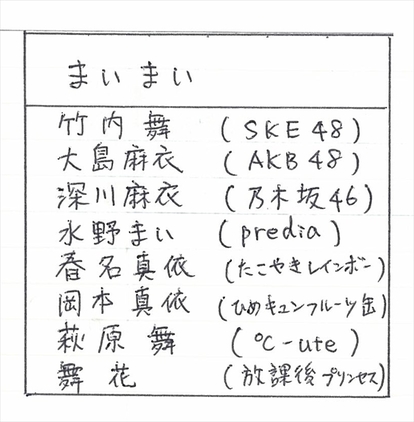 まいまい
竹内舞 (SKE48)
大島麻衣 (AKB48)
深川麻衣 (乃木坂46)
水野まい (predia)
春名真依 (たこやきレインボー)
岡本真依 (ひめキュンフルーツ缶)
萩原舞 (℃-ute)
舞花 (放課後プリンセス)